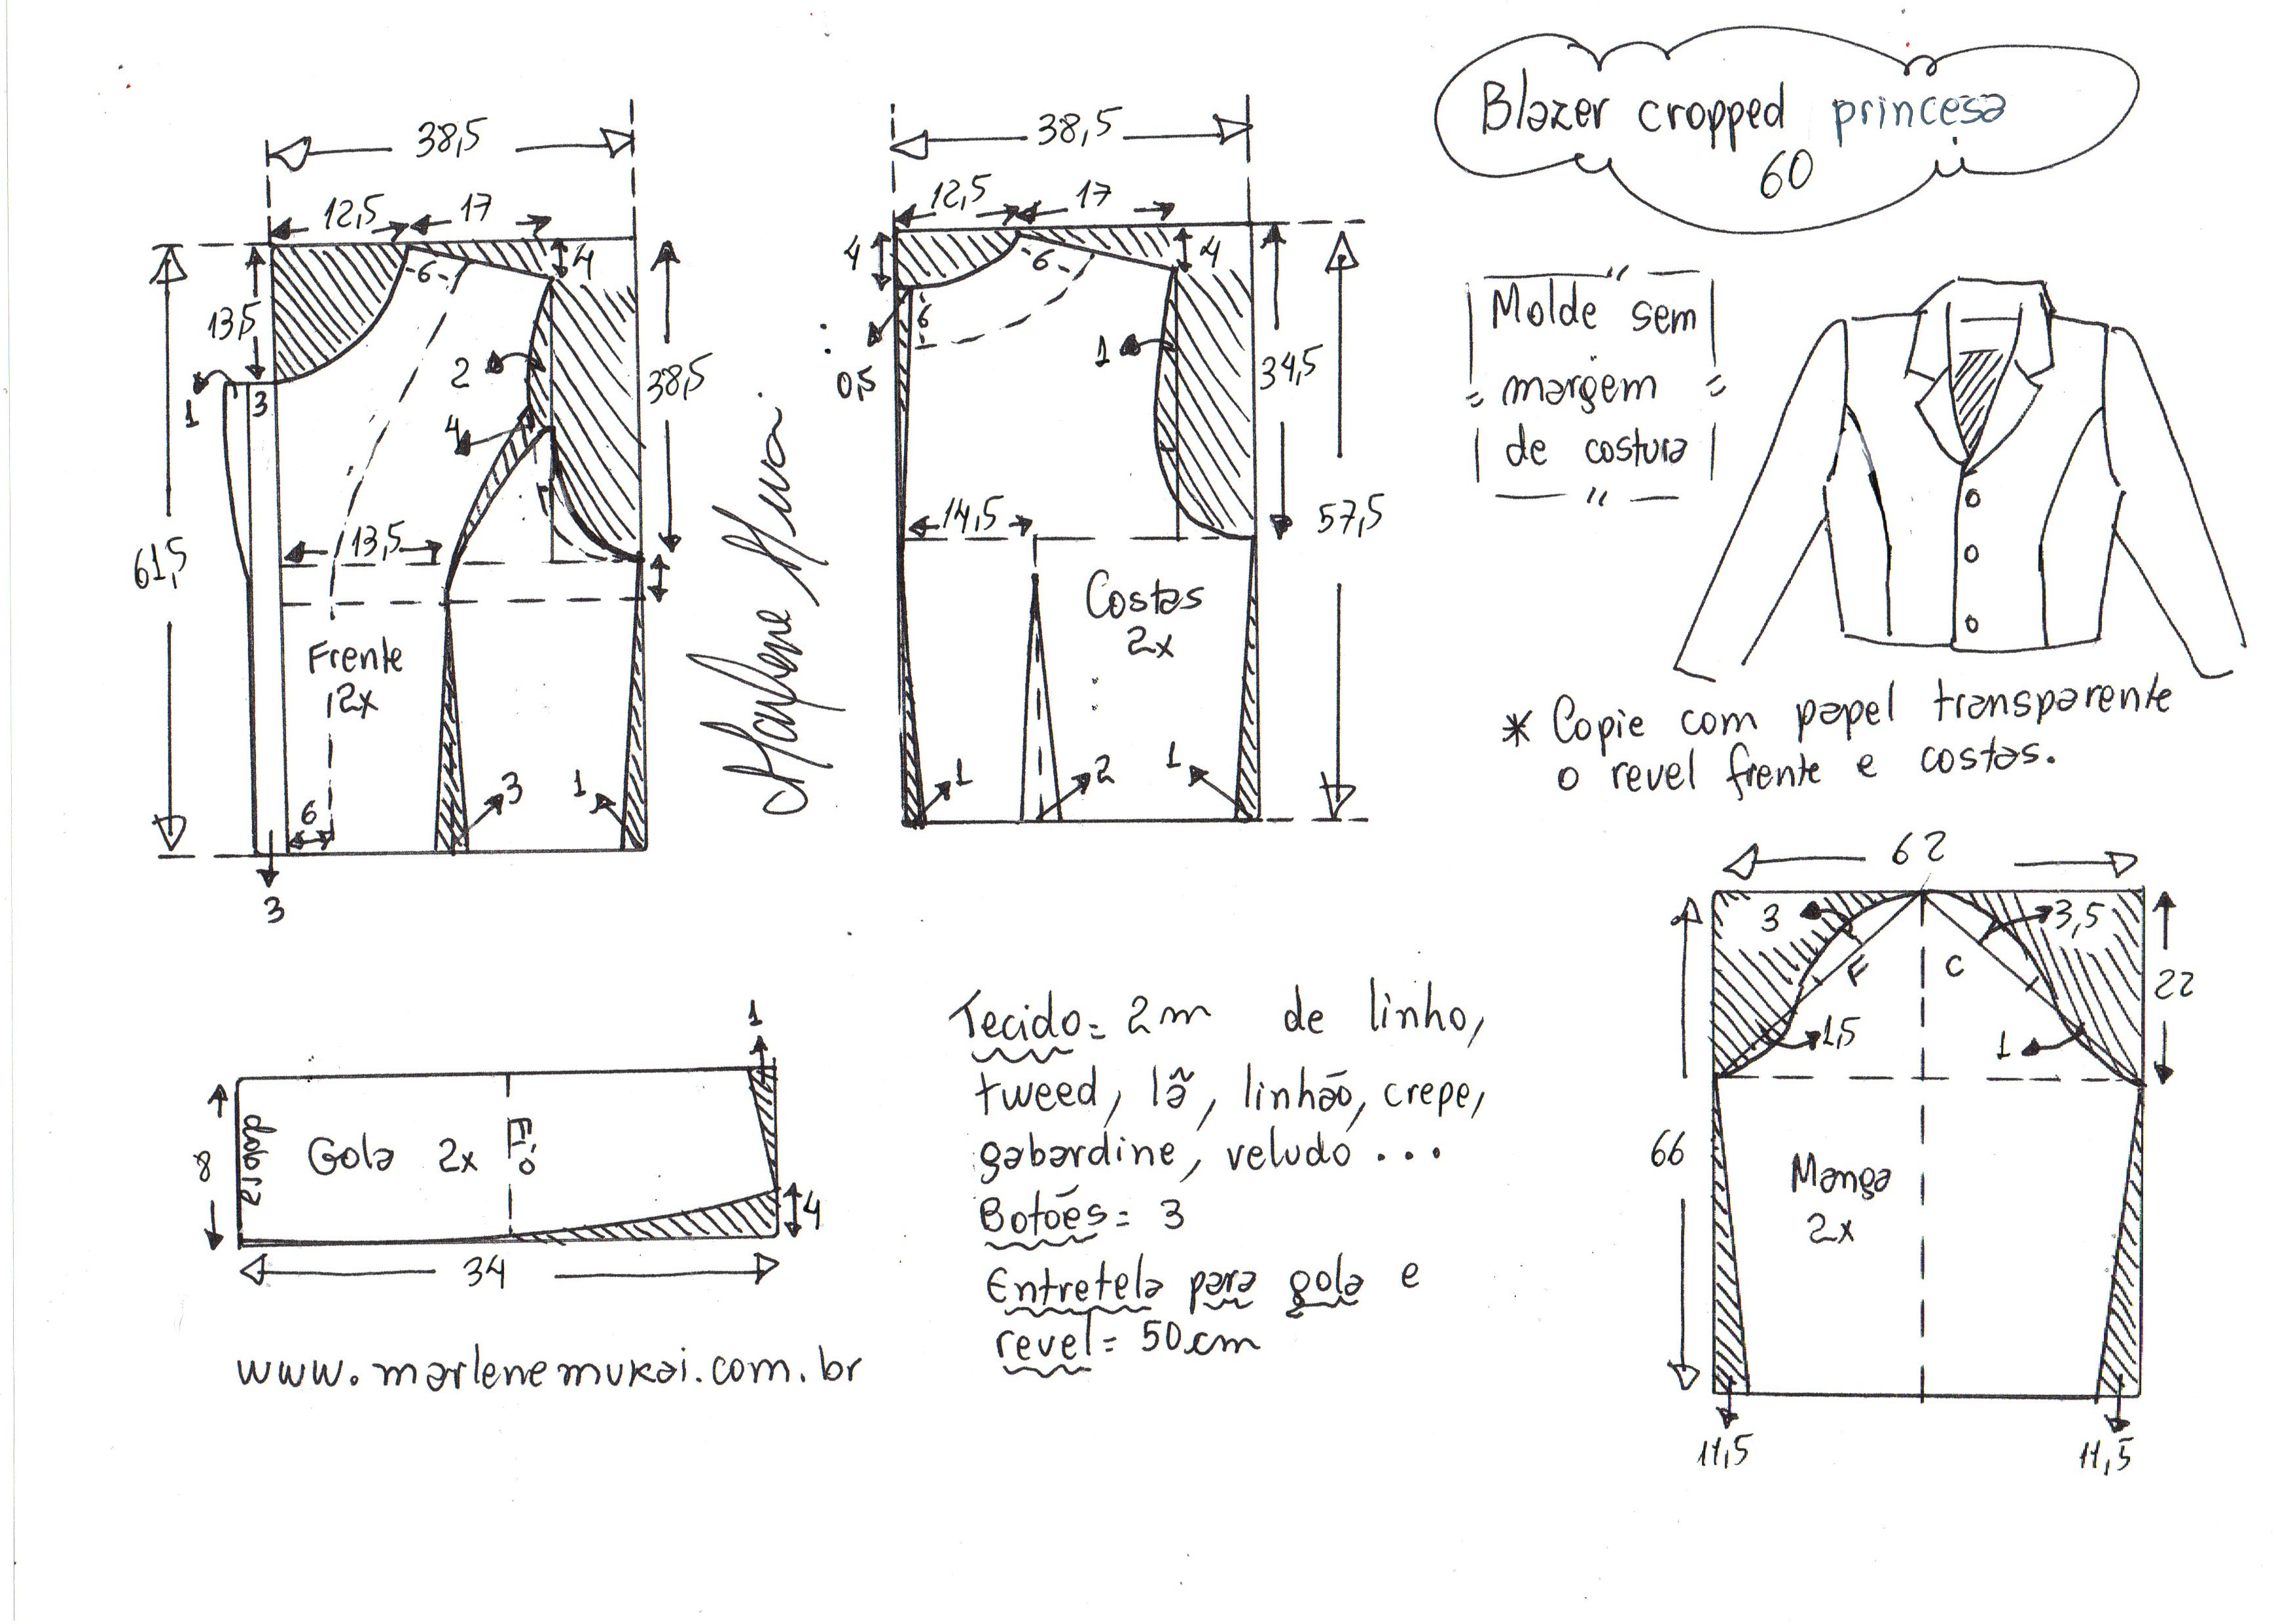 Blazer cropped princesa
60
38,5
12,5
17
4
6
13,5
1
3
2
4
38,5
61,5
13,5
Frente
2x
6
3
1
3
Marlene Mukai
38,5
12,5
17
4
4
6
6
0,5
1
34,5
57,5
14,5
Costas
2x
1
2
1
Molde sem
margem
de costura
* Copie com papel transparente
o revel frente e costas.
62
3
3,5
F
C
22
1,5
1
66
Manga
2x
11,5
11,5
1
8
dobra
Gola 2x
Fio
4
34
Tecido= 2m de linho,
tweed, lã, linhão, crepe,
gabardine, veludo...
Botões= 3
Entretela para gola e
revel= 50cm
www.marlenemukai.com.br